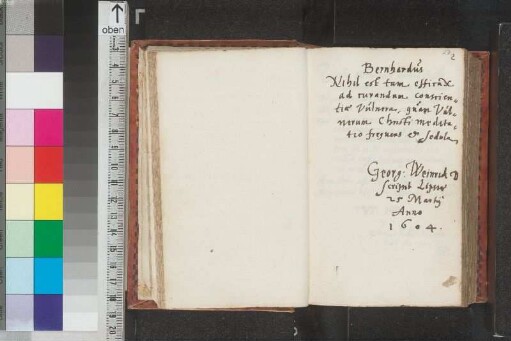 oben
Bernhardus
Nihil est tam efficax
ad curandum conscien-
tiæ Vulnera, quam Vul-
nerum Christi medita-
tio frequens et sedula,
Georg: Weinrich D
scripsit Lipsiæ
25 Martij
Anno
1604.